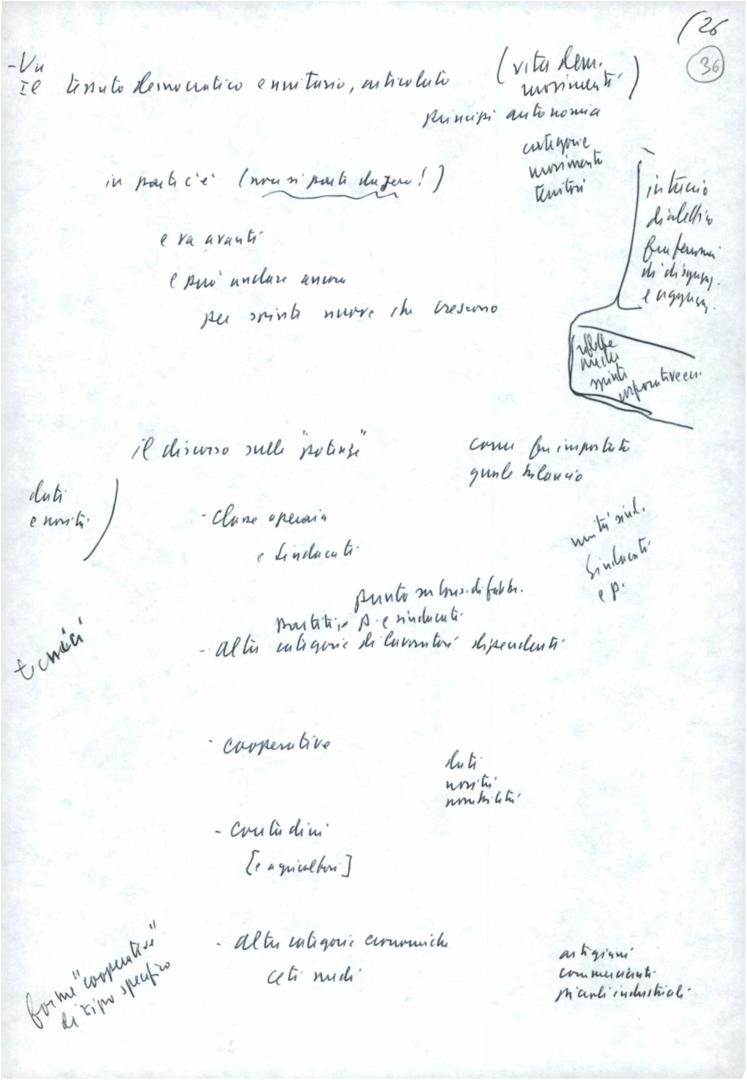 (26
36
- Un
Il tessuto democratico e unitario, articolato
(vita dem.
movimenti)
principi autonomia
categorie
movimenti
territori
in parte c'è (non si parte da zero!)
e va avanti
e può andare ancora
per spinte nuove che crescono
intreccio
dialettico
fra fenomeni
di disgreg.
e aggreg.
nelle
spinte
corporative ecc.
il discorso sulle "potenze"
come fu impostato
quale bilancio
dati
e novità
- classe operaia
e sindacati
unità sind.
Sindacati
e p.
punto su cons. di fabbr.
partiti, p. e sindacati
- altre categorie di lavoratori dipendenti
tecnici
- cooperative
dati
novità
possibilità
- contadini
[e agricoltori]
- altre categorie economiche
ceti medi
artigiani
commercianti
piccoli industriali
forme "cooperative"
di tipo specifico